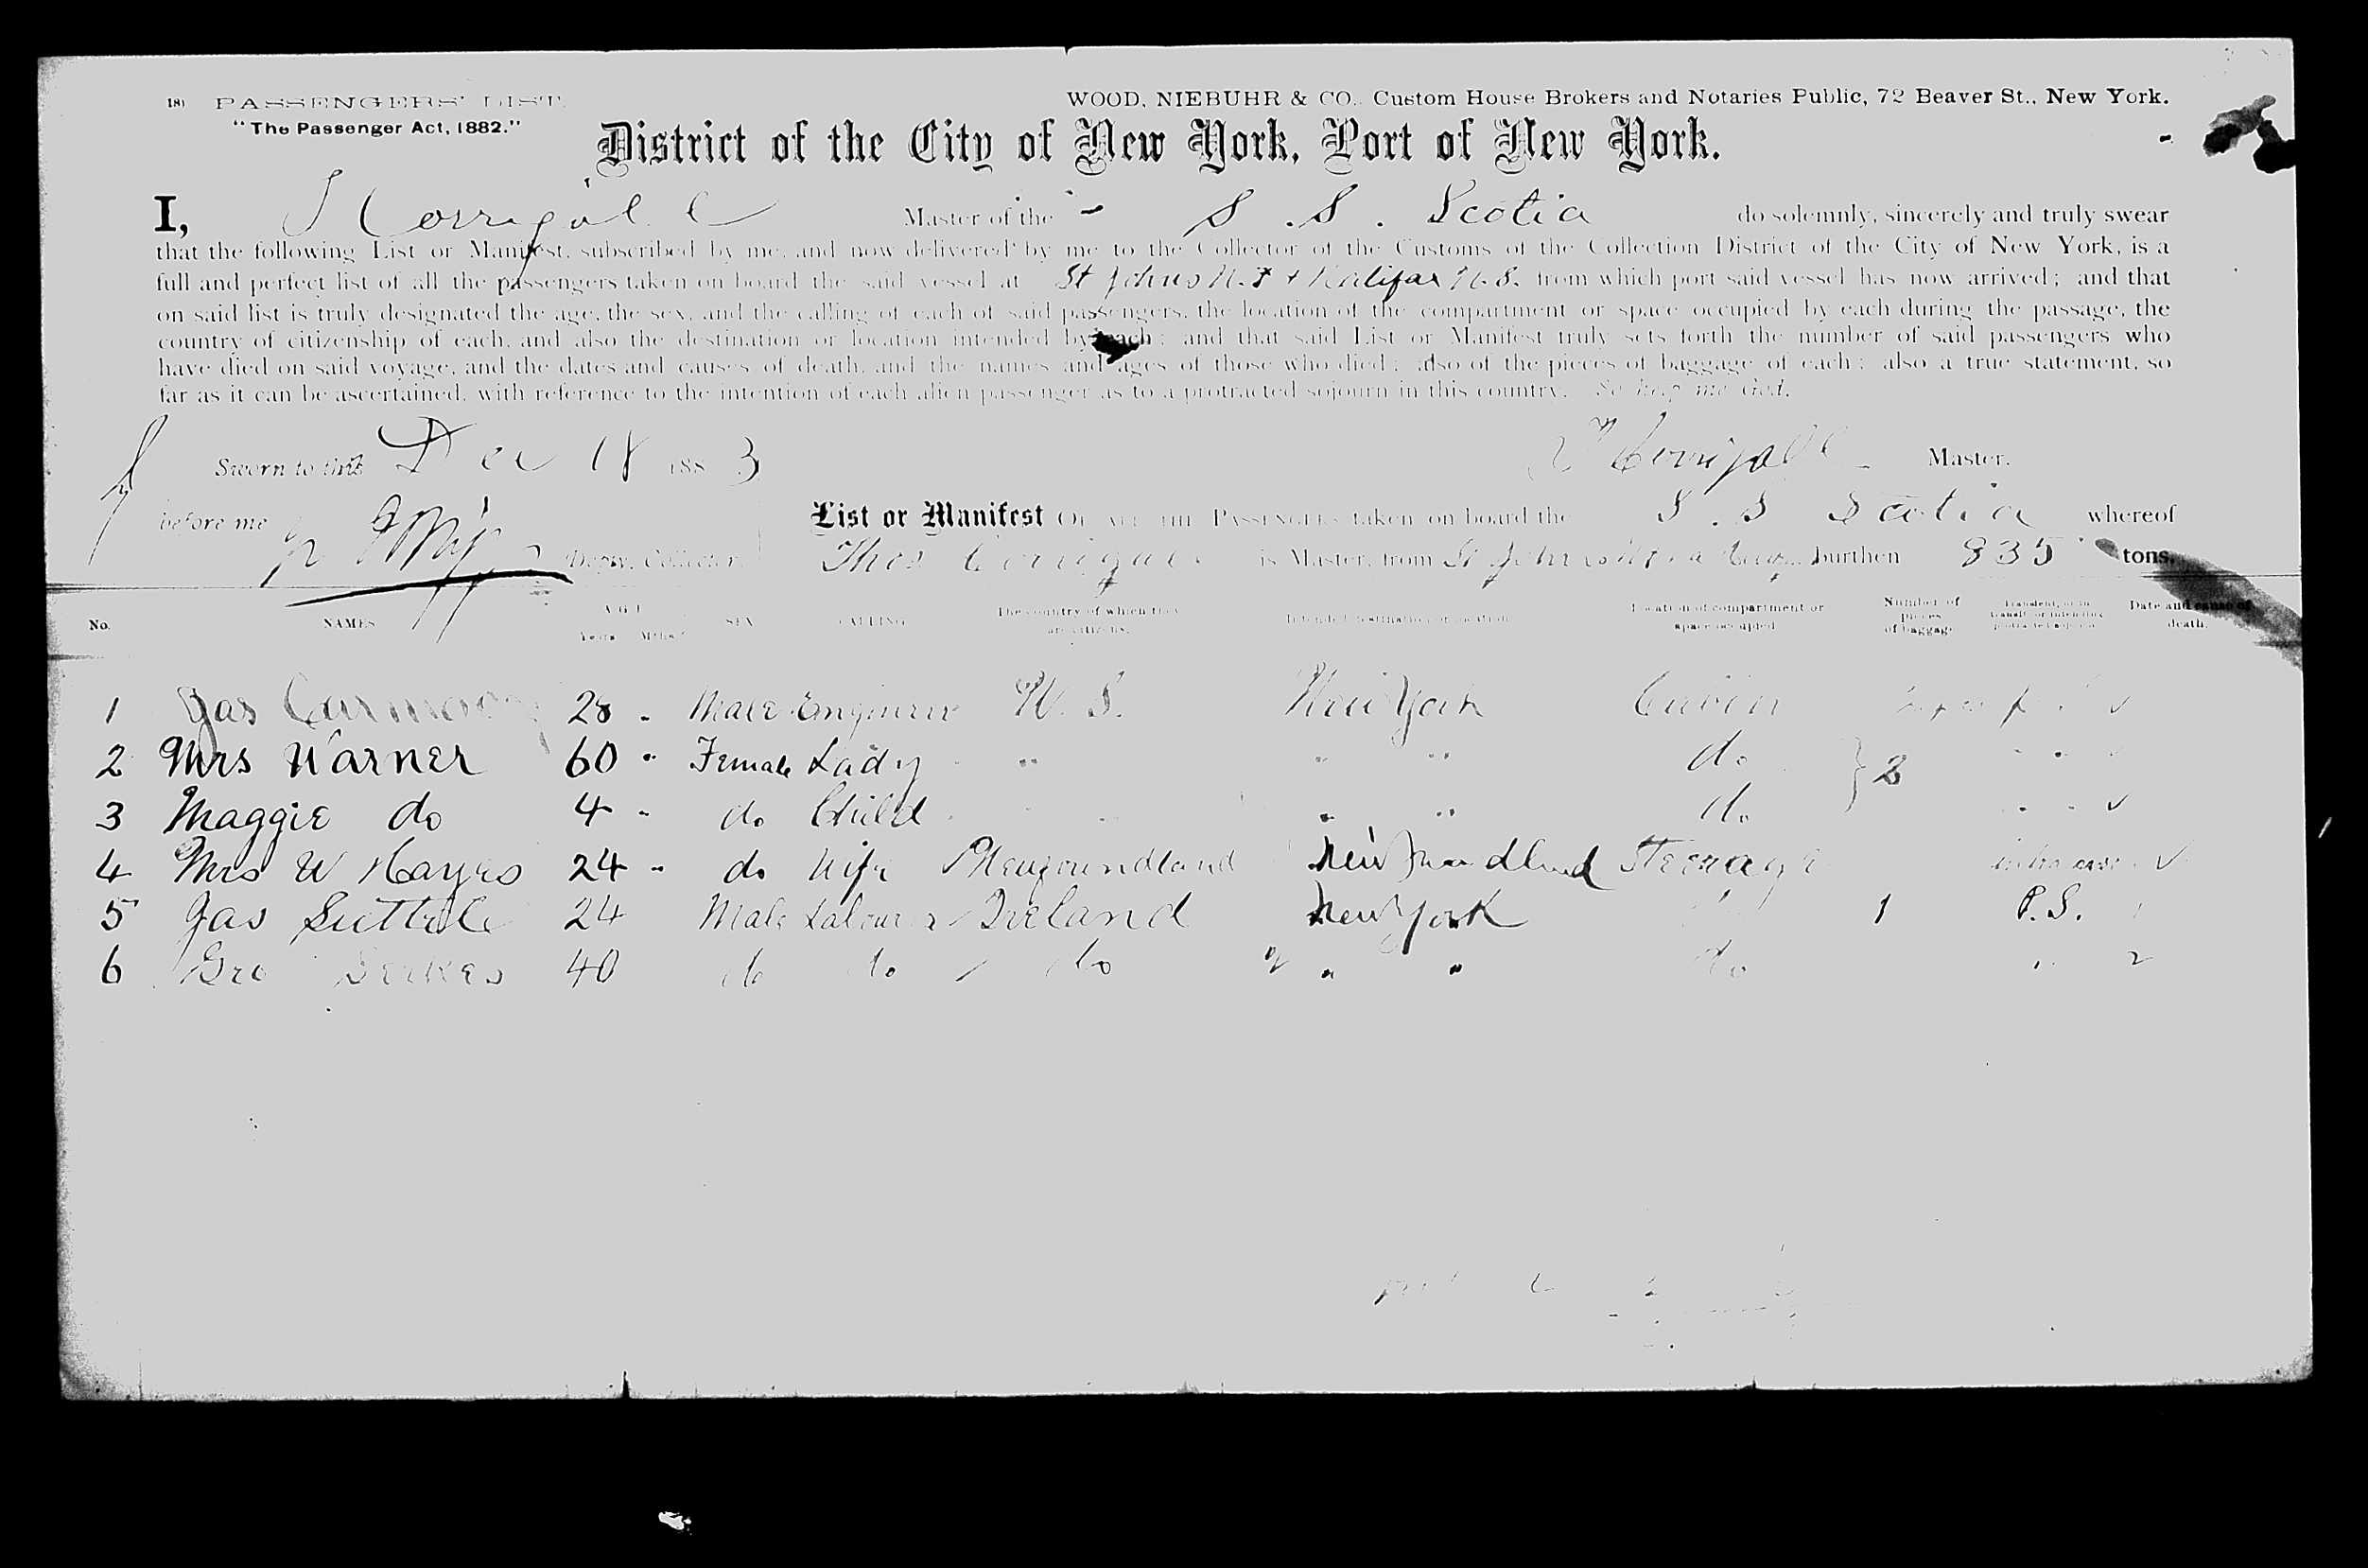 181 PASSENGERS' LIST.
WOOD, NIEBUHR & CO., Custom House Brokers and Notaries Public, 72 Beaver St., New York.
"The Passenger Act, 1882."
District of the City of New York, Port of New York.
I, Master of the S. S. Scotia do solemnly, sincerely and truly swear
that the following List or Manifest, subscribed by me, and now delivered by me to the Collector of the Customs of the Collection District of the City of New York, is a
full and perfect list of all the passengers taken on board the said vessel at St Johns N.F + Halifax N.S. from which port said vessel has now arrived; and that
on said list is truly designated the age, the sex, and the calling of each of said passengers, the location of the compartment or space occupied by each during the passage, the
country of citizenship of each, and also the destination or location intended by each; and that said List or Manifest truly sets forth the number of said passengers who
have died on said voyage, and the dates and causes of death, and the names and ages of those who died; also of the pieces of baggage of each; also a true statement, so
far as it can be ascertained, with reference to the intention of each alien passenger as to a protracted sojourn in this country. So help me God.
Sworn to this Dec 18 1883 Corrigall Master.
before me Deputy Collector. List or Manifest OF ALL THE PASSENGERS taken on board the S. S Scotia whereof
Thos Corrigall is Master, from St Johns burthen 835 tons.
No. NAMES AGE Years Mths SEX CALLING The country of which they are citizens. Intended destination or location. Location of compartment or space occupied Number of pieces of baggage Transient, or in transit or intending protracted sojourn Date and cause of death.
1 Jas 28 - Male Engineer New York Cabin
2 Mrs Warner 60 " Female Lady " " " do } 2
3 Maggie do 4 - do Child " " do
4 Mrs W Hayes 24 - do Wife Newfoundland Newfoundland Steerage
5 Jas 24 Male Labourer Ireland New York 1 P.S.
6 Geo 40 do do do " " do